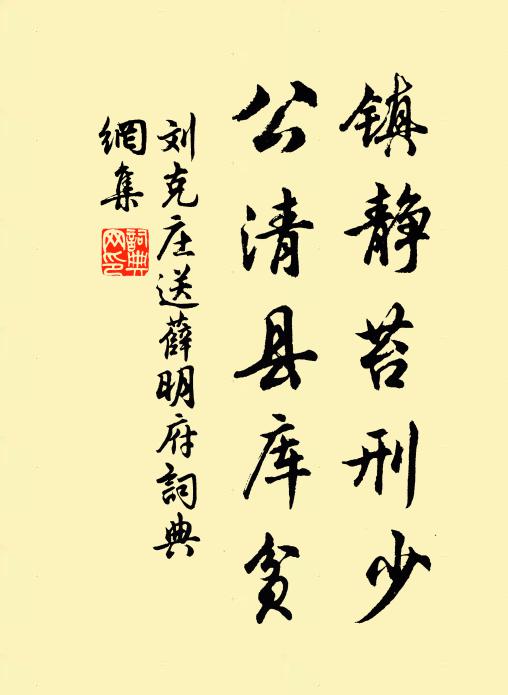 镇静苔刑少
公清县库贫
刘克庄送薛明府詞典
網集
詞典
网印